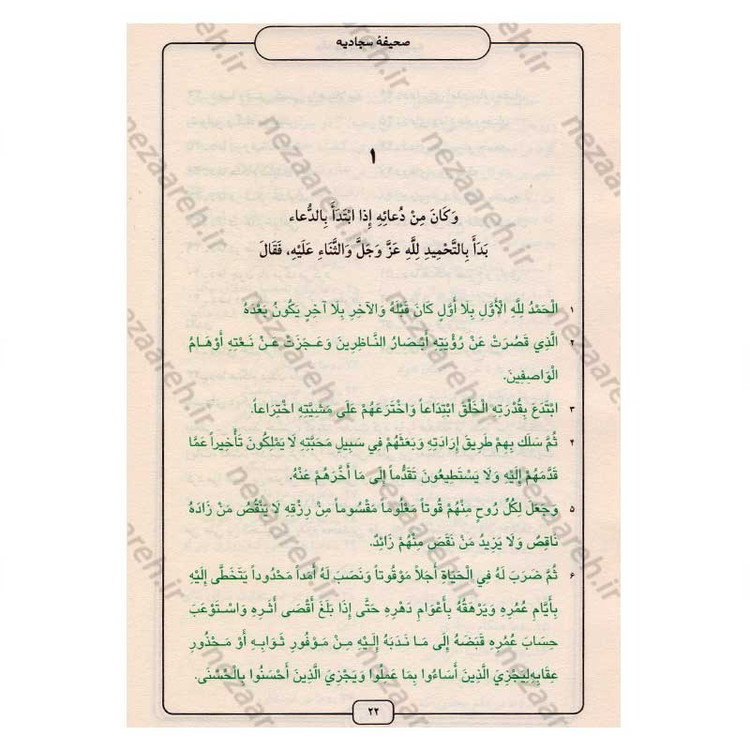 صحیفهٔ سجادیه
۱
وَكَانَ مِنْ دُعائِهِ إِذَا ابْتَدَأَ بِالدُّعاء
بَدَأَ بِالتَّحْمِيدِ لِلَّهِ عَزَّ وَجَلَّ وَالثَّنَاءِ عَلَيْهِ، فَقَالَ
۱ الْحَمْدُ لِلَّهِ الْأَوَّلِ بِلَا أَوَّلٍ كَانَ قَبْلَهُ وَالآخِرِ بِلَا آخِرٍ يَكُونُ بَعْدَهُ
۲ الَّذِي قَصُرَتْ عَنْ رُؤْيَتِهِ أَبْصَارُ النَّاظِرِينَ وَعَجَزَتْ عَنْ نَعْتِهِ أَوْهَامُ
الْوَاصِفِينَ.
۳ ابْتَدَعَ بِقُدْرَتِهِ الْخَلْقَ ابْتِدَاعاً وَاخْتَرَعَهُمْ عَلَى مَشِيَّتِهِ اخْتِرَاعاً.
۴ ثُمَّ سَلَكَ بِهِمْ طَرِيقَ إِرَادَتِهِ وَبَعَثَهُمْ فِي سَبِيلِ مَحَبَّتِهِ لَا يَمْلِكُونَ تَأْخِيراً عَمَّا
قَدَّمَهُمْ إِلَيْهِ وَلَا يَسْتَطِيعُونَ تَقَدُّماً إِلَى مَا أَخَّرَهُمْ عَنْهُ.
۵ وَجَعَلَ لِكُلِّ رُوحٍ مِنْهُمْ قُوتاً مَعْلُوماً مَقْسُوماً مِنْ رِزْقِهِ لَا يَنْقُصُ مَنْ زَادَهُ
نَاقِصٌ وَلَا يَزِيدُ مَنْ نَقَصَ مِنْهُمْ زَائِدٌ.
۶ ثُمَّ ضَرَبَ لَهُ فِي الْحَيَاةِ أَجَلاً مَوْقُوتاً وَنَصَبَ لَهُ أَمَداً مَحْدُوداً يَتَخَطَّى إِلَيْهِ
بِأَيَّامِ عُمُرِهِ وَيَرْهَقُهُ بِأَعْوَامِ دَهْرِهِ حَتَّى إِذَا بَلَغَ أَقْصَى أَثَرِهِ وَاسْتَوْعَبَ
حِسَابَ عُمُرِهِ قَبَضَهُ إِلَى مَا نَدَبَهُ إِلَيْهِ مِنْ مَوْفُورِ ثَوَابِهِ أَوْ مَحْذُورِ
عِقَابِهِ لِيَجْزِيَ الَّذِينَ أَسَاءُوا بِمَا عَمِلُوا وَيَجْزِيَ الَّذِينَ أَحْسَنُوا بِالْحُسْنَى.
۲۲
nezaareh.ir